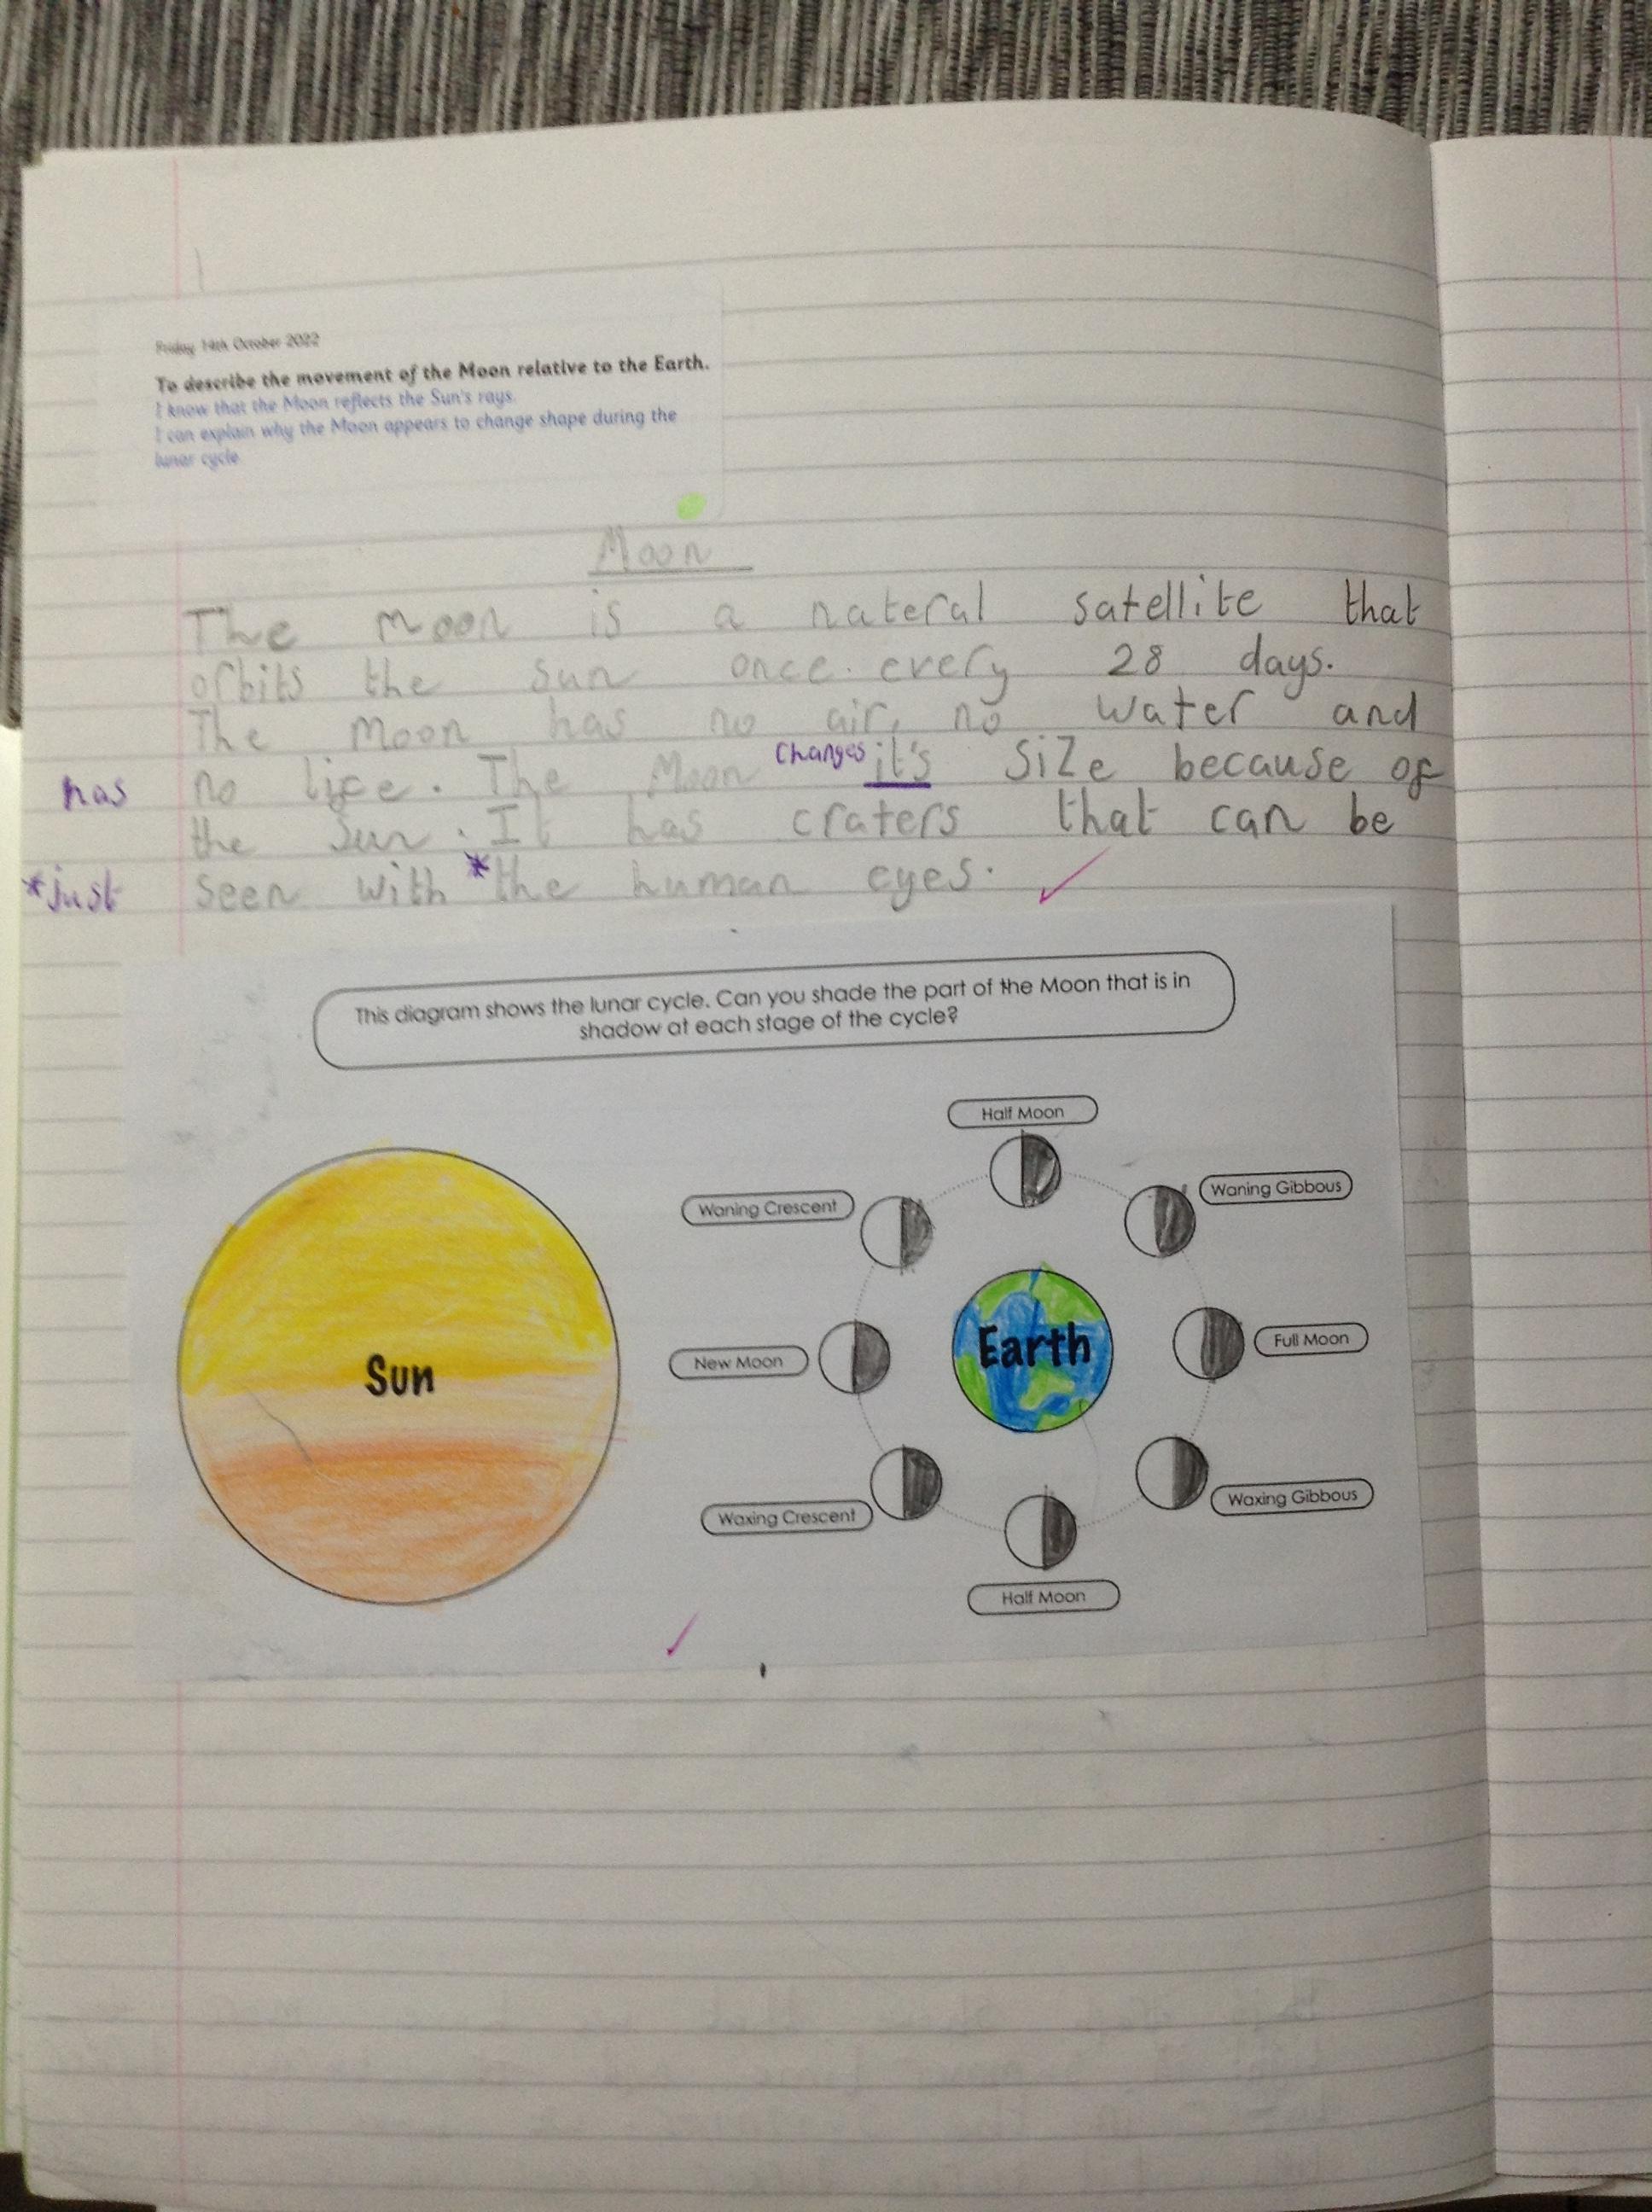 Friday 14th October 2022
To describe the movement of the Moon relative to the Earth.
I know that the Moon reflects the Sun's rays.
I can explain why the Moon appears to change shape during the
lunar cycle
Moon
The moon is a nateral satellite that
orbits the sun once every 28 days.
The Moon has no air, no water and
has no life. The Moon changes it's size because of
the Sun. It has craters that can be
*just seen with *the human eyes.
This diagram shows the lunar cycle. Can you shade the part of the Moon that is in
shadow at each stage of the cycle?
Half Moon
Waning Crescent
Waning Gibbous
Sun
New Moon
Earth
Full Moon
Waxing Crescent
Waxing Gibbous
Half Moon